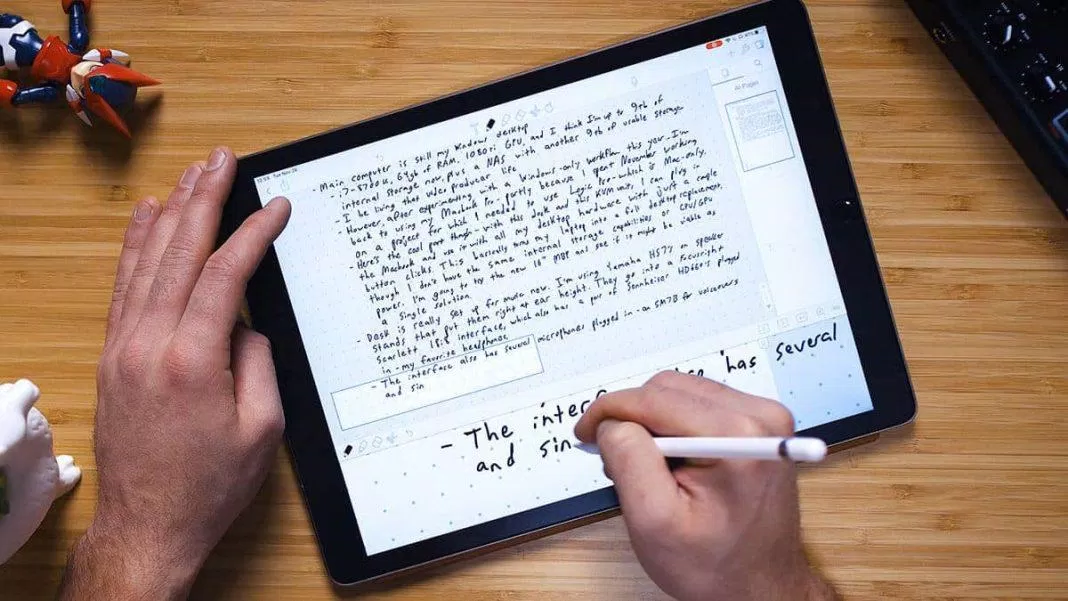 - Main computer is still my Windows desktop
- i7-8700k, 64gb of RAM, 1080ti GPU, and I think I'm up to 9tb of
internal storage now, plus a NAS with another 9tb of usable storage.
- I be living that producer life
However, after experimenting with a Windows-only workflow this year - I'm
back to using my Macbook Pro. Partly because I spent November working
on a project for which I needed to use Logic Pro - which is Mac-only.
- Here's the cool part though - with this dock and this KVM unit, I can plug in
the Macbook and use it with all my desktop hardware with just a couple
button clicks. This basically turns my laptop into a full desktop replacement,
though I don't have the same internal storage capabilities or CPU/GPU
power. I'm going to try the new 16" MBP and see if it might be viable as
a single solution.
- Desk is really set up for audio now. I'm using Yamaha HS7's on speaker
stands that put them right at ear height. They go into a Focusright
Scarlett 18i8 interface, which also has a pair of Sennheiser HD660's plugged
in - my favorite headphones
- The interface also has several microphones plugged in - an SM7B for voiceovers
and sin
All Pages
- The inter has several
and sin